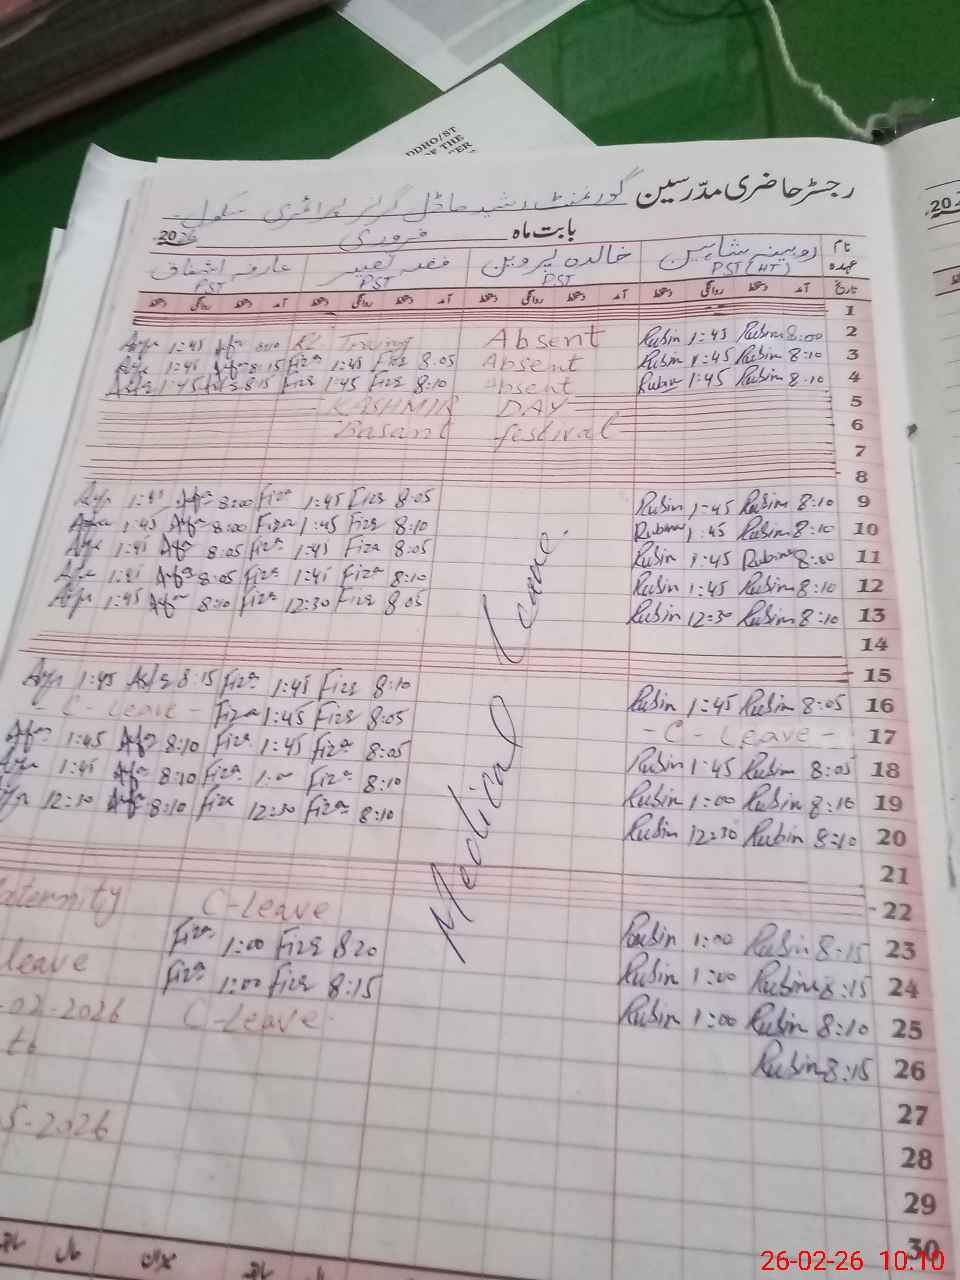 DDHO/ST
OF THE
CER
رجسٹر حاضری مدرسین گورنمنٹ رشید ماڈل گرلز پرائمری سکول
بابت ماہ فروری 2026
نام عہدہ روبینہ شاہین PST (HT) خالدہ پروین PST فضہ کبیر PST عارفہ اشفاق PST
تاریخ آمد دستخط روانگی دستخط آمد دستخط روانگی دستخط آمد دستخط روانگی دستخط آمد دستخط روانگی دستخط
1
1:45 Absent Rubin 1:45 Rubin 8:00 2
1:45 8:15 Fiza 1:45 Fiza 8:05 Absent Rubin 1:45 Rubin 8:10 3
1:45 8:15 Fiza 1:45 Fiza 8:10 Absent Rubin 1:45 Rubin 8:10 4
KASHMIR DAY 5
Basant festival 6
7
8
1:45 8:00 Fiza 1:45 Fiza 8:05 Rubin 1:45 Rubin 8:10 9
1:45 8:00 Fiza 1:45 Fiza 8:10 Rubin 1:45 Rubin 8:10 10
1:45 8:05 Fiza 1:45 Fiza 8:05 Rubin 1:45 Rubin 8:00 11
1:45 8:05 Fiza 1:45 Fiza 8:10 Rubin 1:45 Rubin 8:10 12
1:45 8:10 Fiza 12:30 Fiza 8:05 Rubin 12:30 Rubin 8:10 13
Medical Leave
14
15
1:45 8:15 Fiza 1:45 Fiza 8:10 Rubin 1:45 Rubin 8:05 16
- C - Leave - Fiza 1:45 Fiza 8:05 - C - Leave - 17
1:45 8:10 Fiza 1:45 Fiza 8:05 Rubin 1:45 Rubin 8:05 18
1:45 8:10 Fiza 1:00 Fiza 8:10 Rubin 1:00 Rubin 8:10 19
12:30 8:10 Fiza 12:30 Fiza 8:10 Rubin 12:30 Rubin 8:10 20
21
aternity C-Leave 22
Fiza 1:00 Fiza 8:20 Rubin 1:00 Rubin 8:15 23
leave Fiza 1:00 Fiza 8:15 Rubin 1:00 Rubin 8:15 24
-02-2026 C-Leave Rubin 1:00 Rubin 8:10 25
to Rubin 8:15 26
27
5-2026 28
29
30
26-02-26 10:10